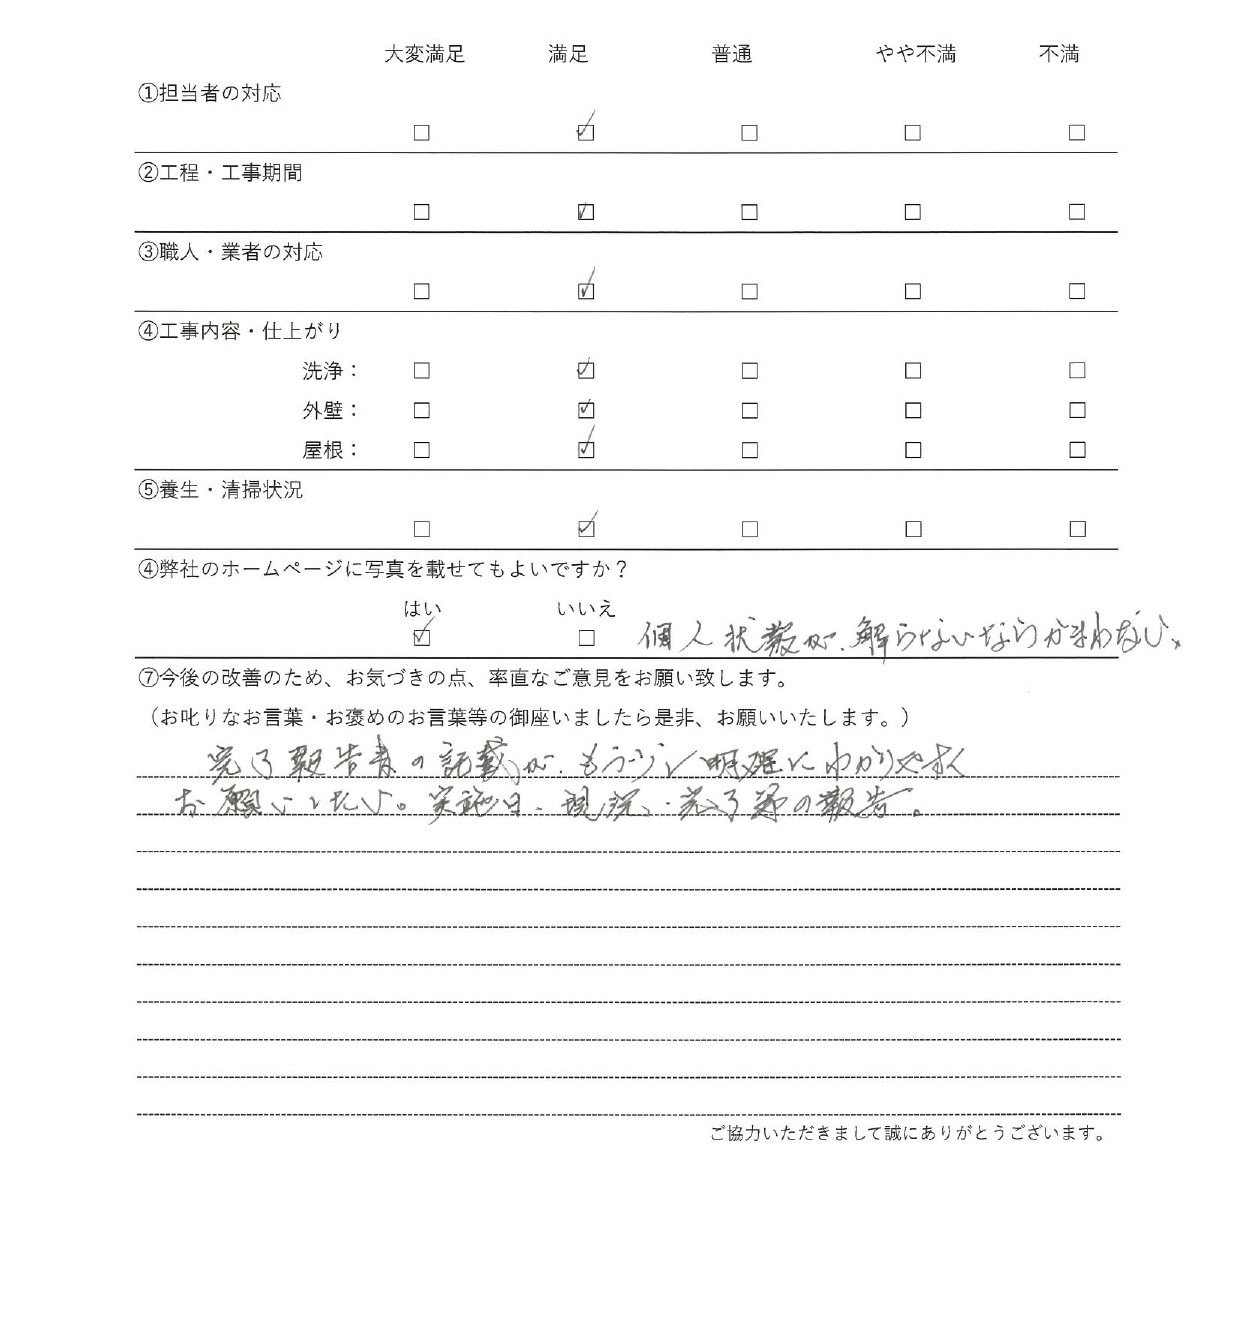 大変満足 満足 普通 やや不満 不満
①担当者の対応
□ ☑ □ □ □
②工程・工事期間
□ ☑ □ □ □
③職人・業者の対応
□ ☑ □ □ □
④工事内容・仕上がり
洗浄： □ ☑ □ □ □
外壁： □ ☑ □ □ □
屋根： □ ☑ □ □ □
⑤養生・清掃状況
□ ☑ □ □ □
④弊社のホームページに写真を載せてもよいですか？
はい いいえ
☑ □ 個人状報が、解らないならかまわない、
⑦今後の改善のため、お気づきの点、率直なご意見をお願い致します。
（お叱りなお言葉・お褒めのお言葉等の御座いましたら是非、お願いいたします。）
完了報告書の記載が、もう少し明確にわかりやすく
お願いしたい。実施日、現況、完了等の報告。
ご協力いただきまして誠にありがとうございます。